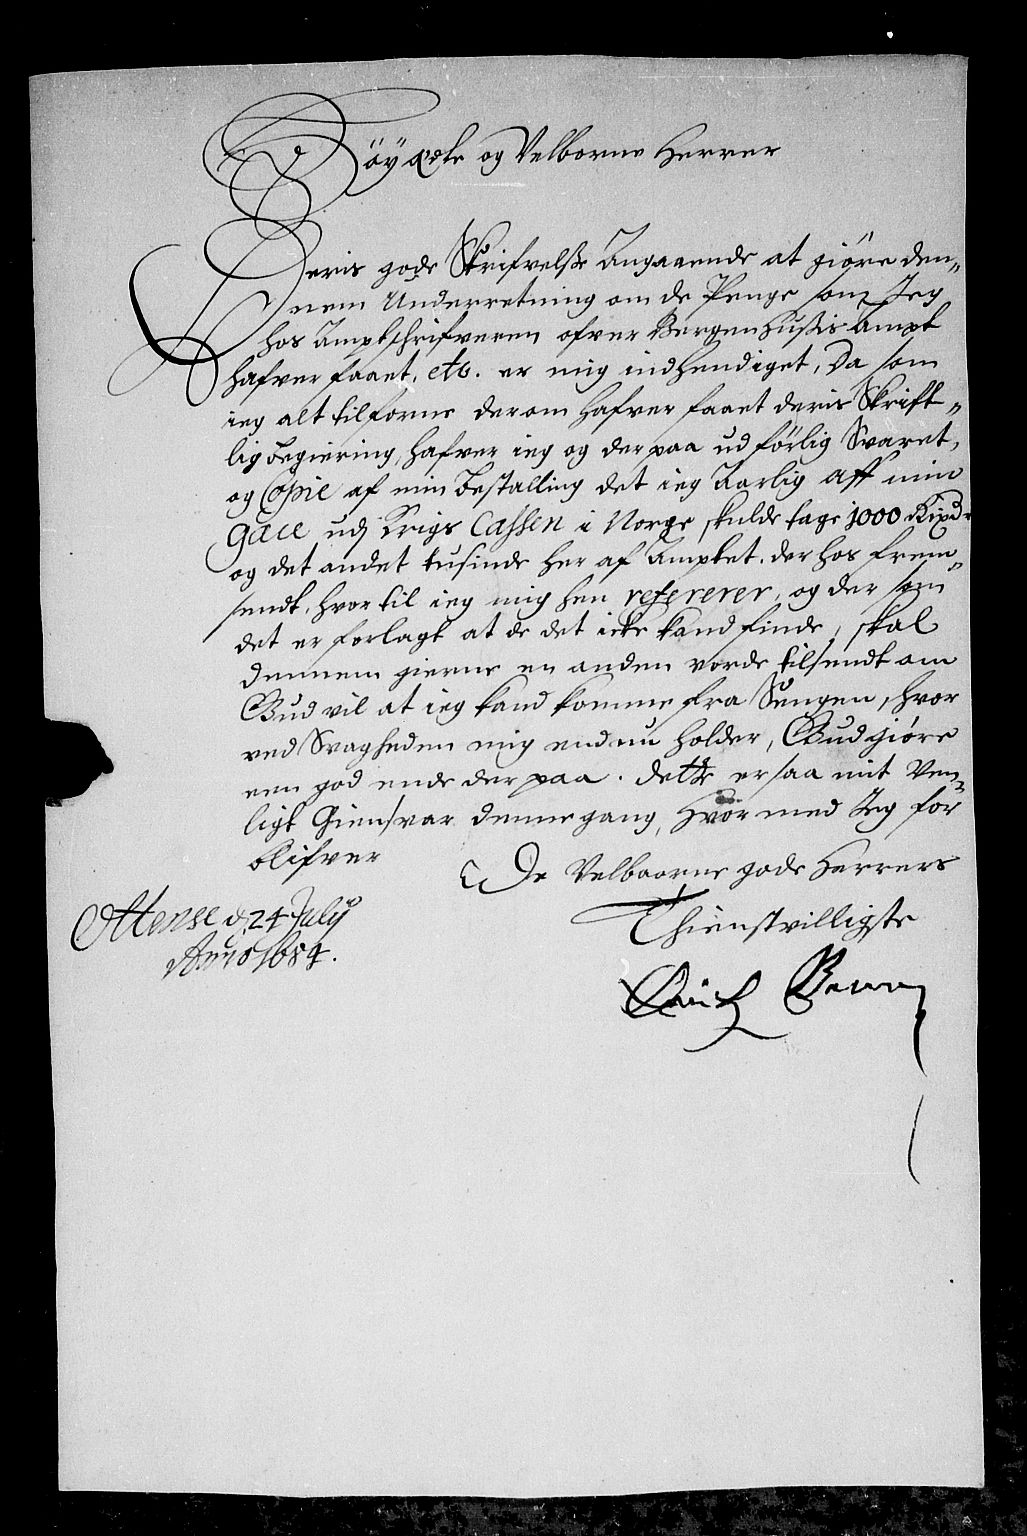 Höyædle og Velborne Herrer
Deris gode Skrifvelsse Angaaende at giöre den„
nem Underretning om de Penge som Jeg
hos Amptschrifveren ofver Bergenhussis Ampt
hafver faaet, etc. er mig indhendiget, Da som
ieg alt tilforne derom hafver faaet deris Skrift„
lig begiering, hafver ieg og der paa udförlig Svaret,
og Copie af min bestalling det ieg Aarlig aff min
Gace udj Krigs Cassen i Norge skulde tage 1000 Rixdr
og det andet tusinde her af Amptet. der hos frem„
sendt, hvortil ieg mig hen refererer, og der som
det er forlagt at de det icke kand finde, skal
dennem gierne en anden vorde tilsendt om
Gud vil at ieg kand komme fra Sengen, hvor
ved Svagheden mig endnu holder, Gud giöre
een god ende der paa. dette er saa mit Ven„
ligt Giensvar denne gang, Hvor med Jeg for
blifver
De Velbaarne gode Herrers
Thienstvilligste
Ottense d. 24 Julÿ
Anno 1684.